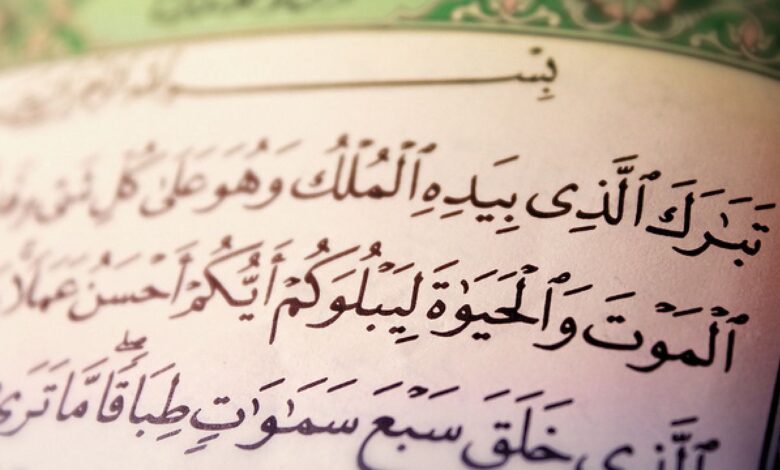 بِسْمِ ٱللَّهِ
تَبَٰرَكَ ٱلَّذِى بِيَدِهِ ٱلْمُلْكُ وَهُوَ عَلَىٰ كُلِّ شَىْءٍ
ٱلْمَوْتَ وَٱلْحَيَوٰةَ لِيَبْلُوَكُمْ أَيُّكُمْ أَحْسَنُ عَمَلًا
ٱلَّذِى خَلَقَ سَبْعَ سَمَٰوَٰتٍ طِبَاقًا ۖ مَّا تَرَىٰ